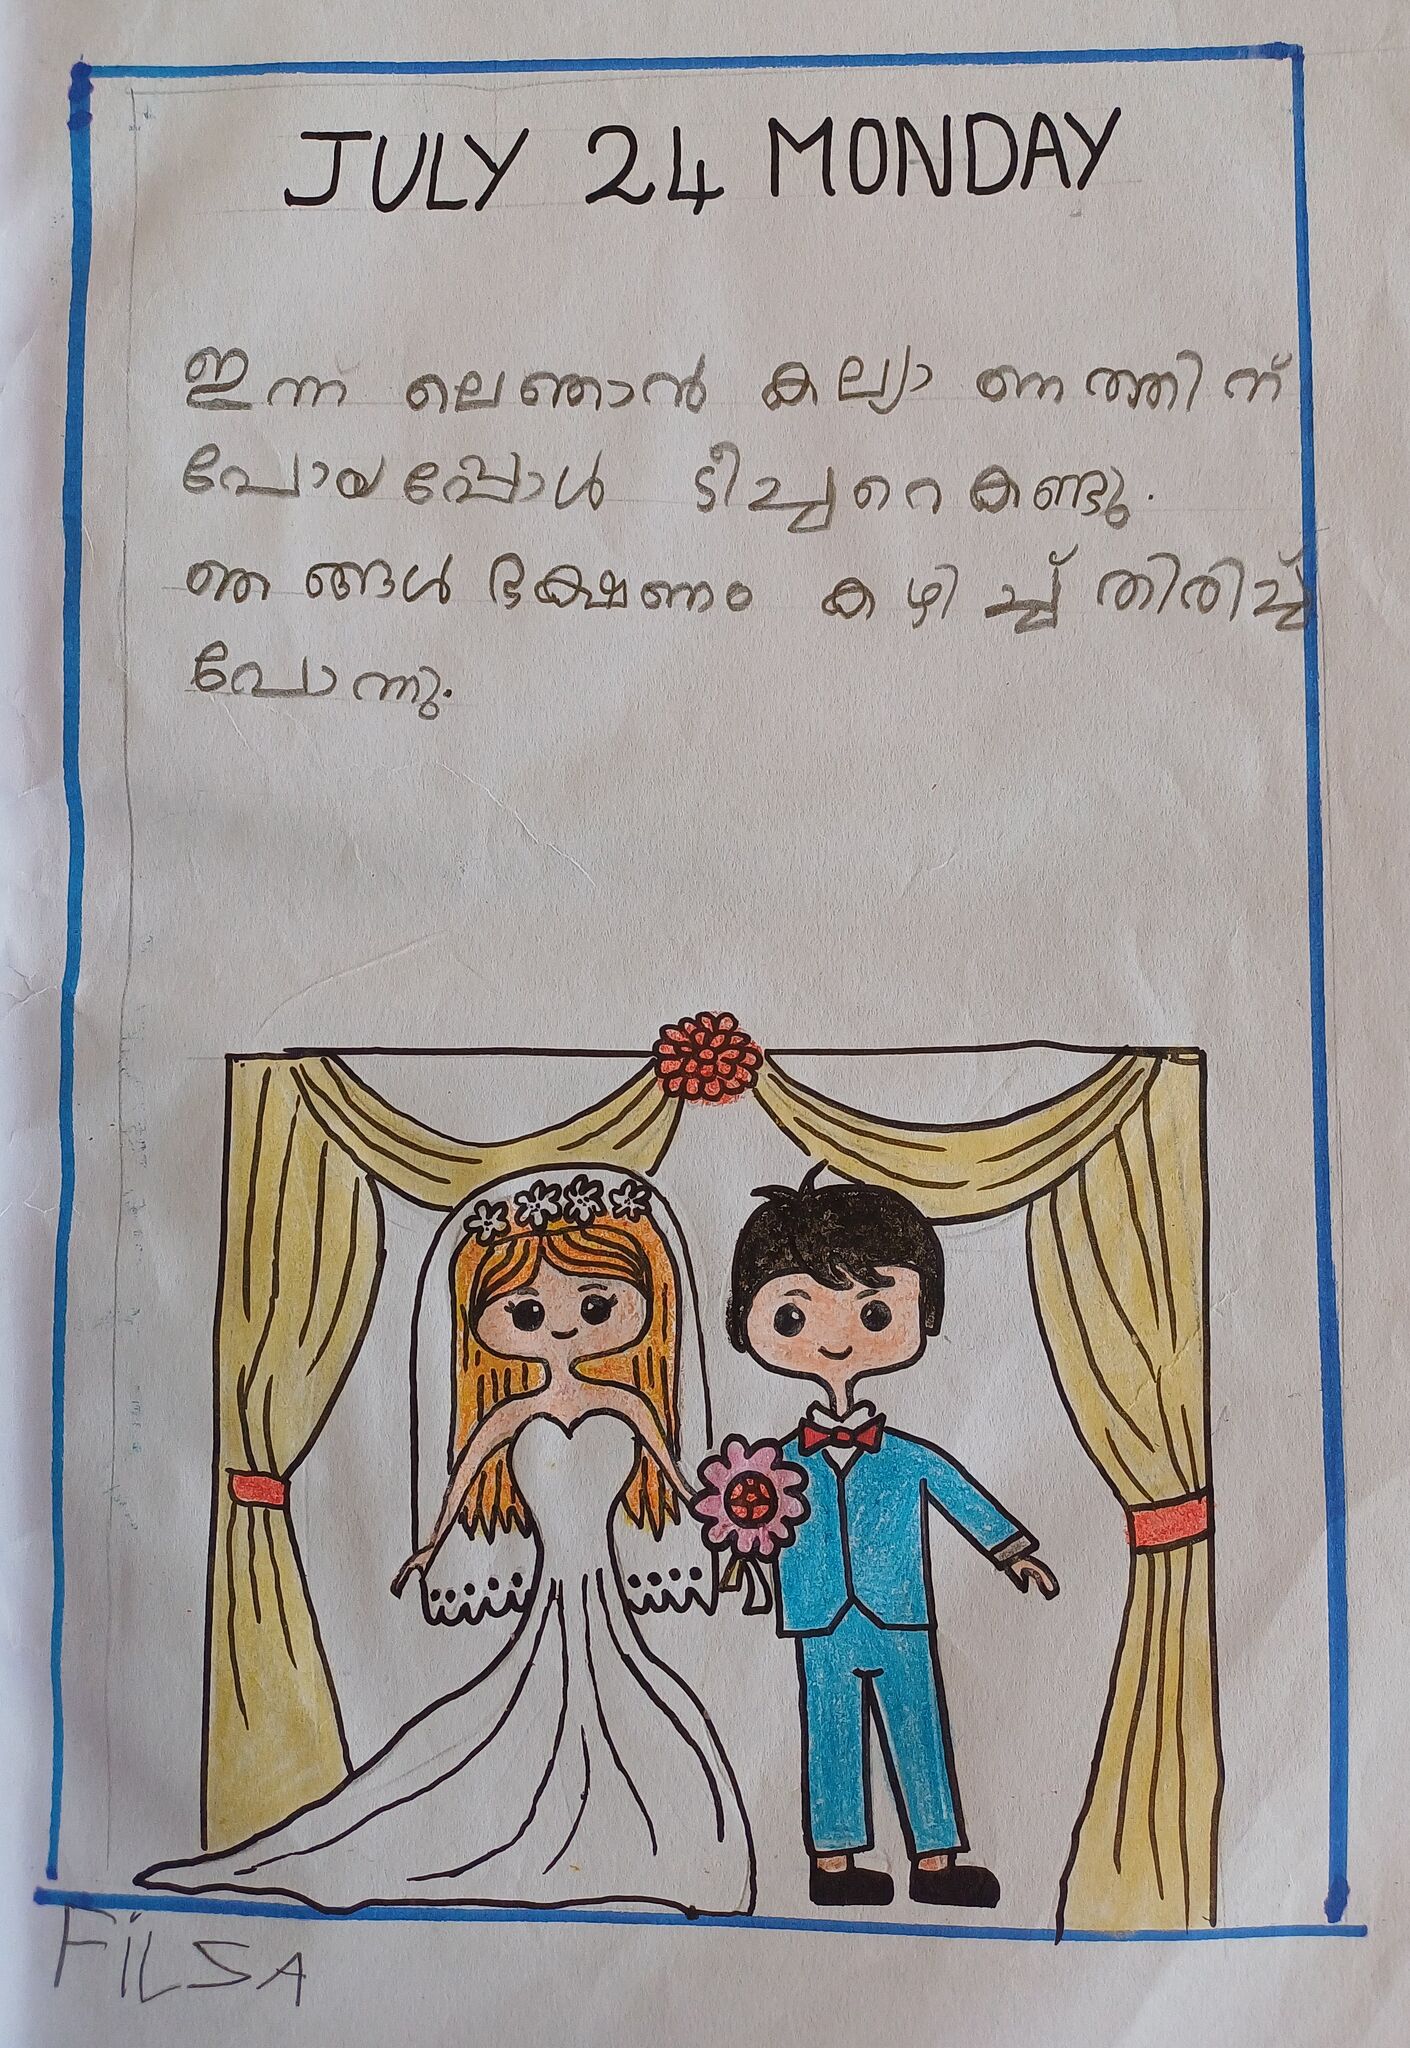 JULY 24 MONDAY
ഇന്ന ലെ ഞാൻ കല്യാണത്തിന്
പോയപ്പോൾ ടീച്ചറെ കണ്ടു.
ഞങ്ങൾ ഭക്ഷണം കഴിച്ച് തിരിച്ച്
പോന്നു.
FILSA